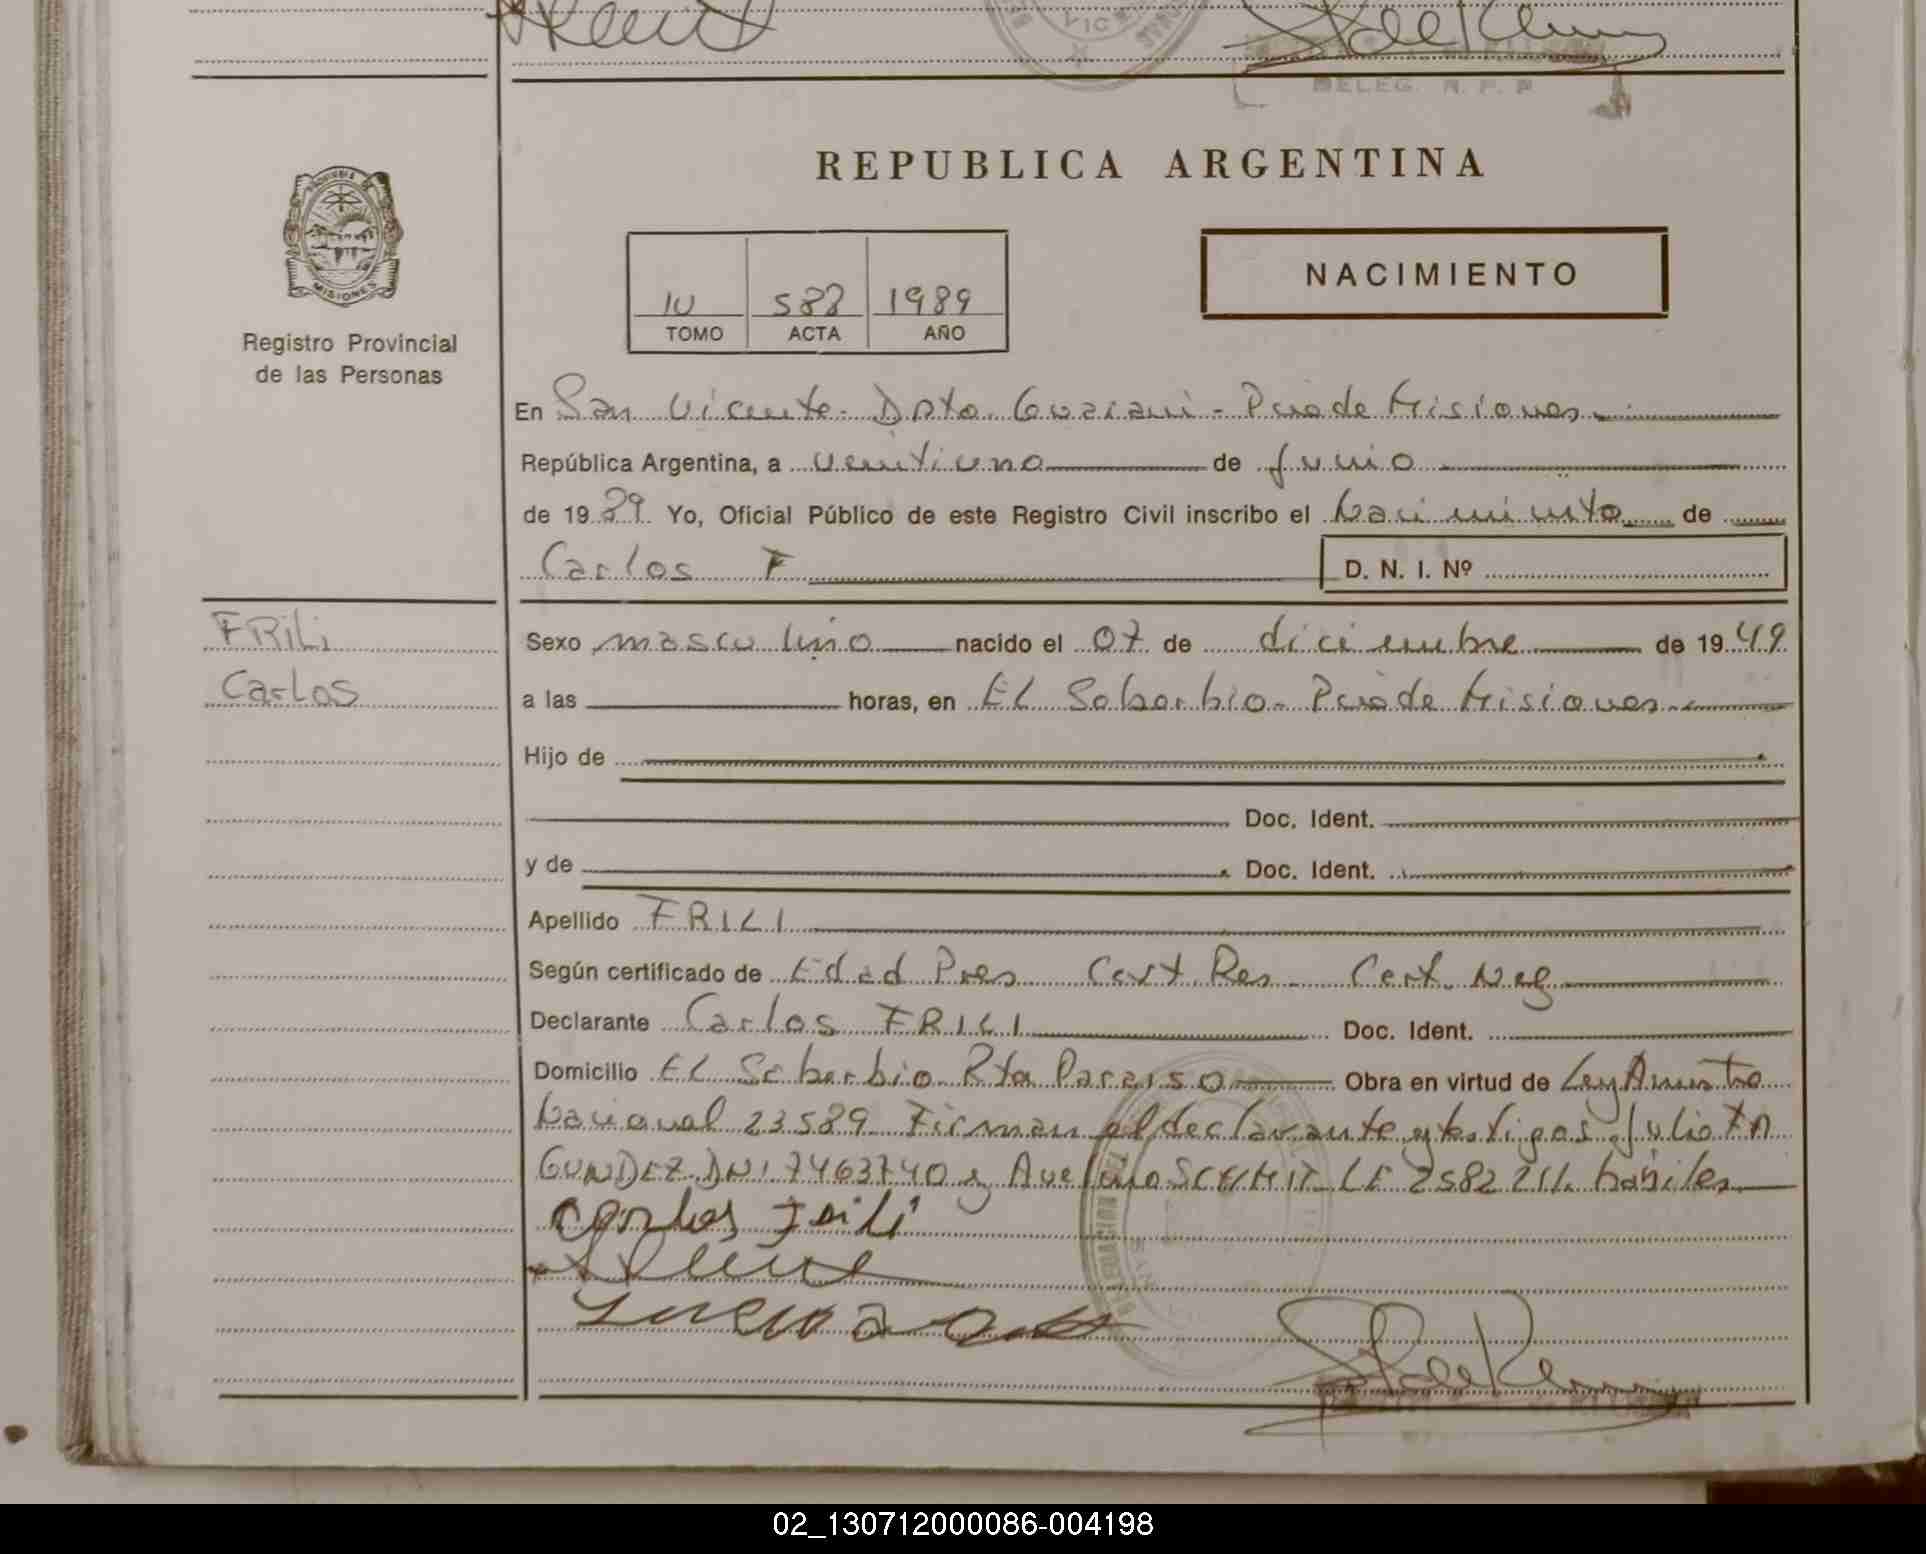 VICE
DELEG. R. P. P
REPUBLICA ARGENTINA
PROVINCIA DE
MISIONES
Registro Provincial
de las Personas
NACIMIENTO
IV 588 1989
TOMO ACTA AÑO
En San Vicente - Dpto. Guarani - Pcia de Misiones
República Argentina, a veintiuno de junio
de 1989 Yo, Oficial Público de este Registro Civil inscribo el Nacimiento de
Carlos F D. N. I. Nº
FRILI
Carlos
Sexo masculino nacido el 07 de diciembre de 1949
a las horas, en EL Soberbio - Pcia de Misiones
Hijo de
Doc. Ident.
y de Doc. Ident.
Apellido FRILI
Según certificado de Edad Pres Cert. Res Cert. Neg
Declarante Carlos FRILI Doc. Ident.
Domicilio EL Soberbio Pto Paraiso Obra en virtud de Ley
Nacional 23589 Firman el declarante y testigos Julio
GUNDEZ DNI 7463740 y Avelino SCHMIT LE 2582211 hábiles
Carlos Frili
02_130712000086-004198